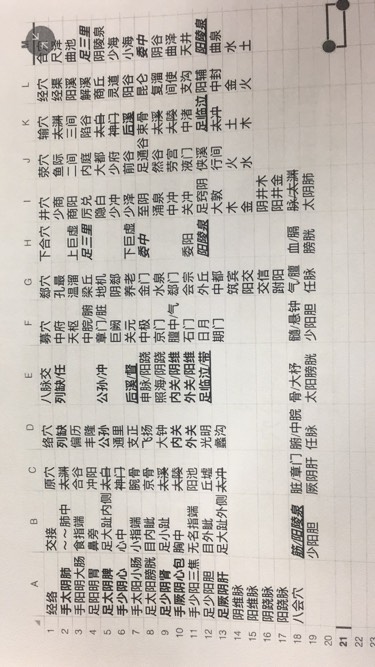 A B C D E F G H I J K L
1 经络 交接 原穴 络穴 八脉交 募穴 郄穴 下合穴 井穴 荥穴 输穴 经穴
2 手太阴肺 ～～肺中 太渊 列缺 列缺/任 中府 孔最 少商 鱼际 太渊 经渠 尺泽
3 手阳明大肠 食指端 合谷 偏历 天枢 温溜 上巨虚 商阳 二间 三间 阳溪 曲池
4 足阳明胃 鼻旁 冲阳 丰隆 中脘/腑 梁丘 足三里 厉兑 内庭 陷谷 解溪 足三里
5 足太阴脾 足大趾内侧 太白 公孙 公孙/冲 章门/脏 地机 隐白 大都 太白 商丘 阴陵泉
6 手少阴心 心中 神门 通里 巨阙 阴郄 少冲 少府 神门 灵道 少海
7 手太阳小肠 小指端 腕骨 支正 后溪/督 关元 养老 下巨虚 少泽 前谷 后溪 阳谷 小海
8 足太阳膀胱 目内眦 京骨 飞扬 申脉/阳跷 中极 金门 委中 至阴 足通谷 束骨 昆仑 委中
9 足少阴肾 足小趾 太溪 大钟 照海/阴跷 京门 水泉 涌泉 然谷 太溪 复溜 阴谷
10 手厥阴心包 胸中 大陵 内关 内关/阴维 膻中/气 郄门 中冲 劳宫 大陵 间使 曲泽
11 手少阳三焦 无名指端 阳池 外关 外关/阳维 石门 会宗 委阳 关冲 液门 中渚 支沟 天井
12 足少阳胆 目外眦 丘墟 光明 足临泣/带 日月 外丘 阳陵泉 足窍阴 侠溪 足临泣 阳辅 阳陵泉
13 足厥阴肝 足大趾外侧 太冲 蠡沟 期门 中都 大敦 行间 太冲 中封 曲泉
14 阴维脉 筑宾 木 火 土 金 水
15 阳维脉 阳交 金 水 木 火 土
16 阴跷脉 交信 阴井木
17 阳跷脉 跗阳 阳井金
18 八会穴 筋/阳陵泉 脏/章门 腑/中脘 骨/大杼 髓/悬钟 气/膻 血/膈 脉/太渊
19 少阳胆 厥阴肝 任脉 太阳膀胱 少阳胆 任脉 膀胱 太阴肺
20
21
22
23